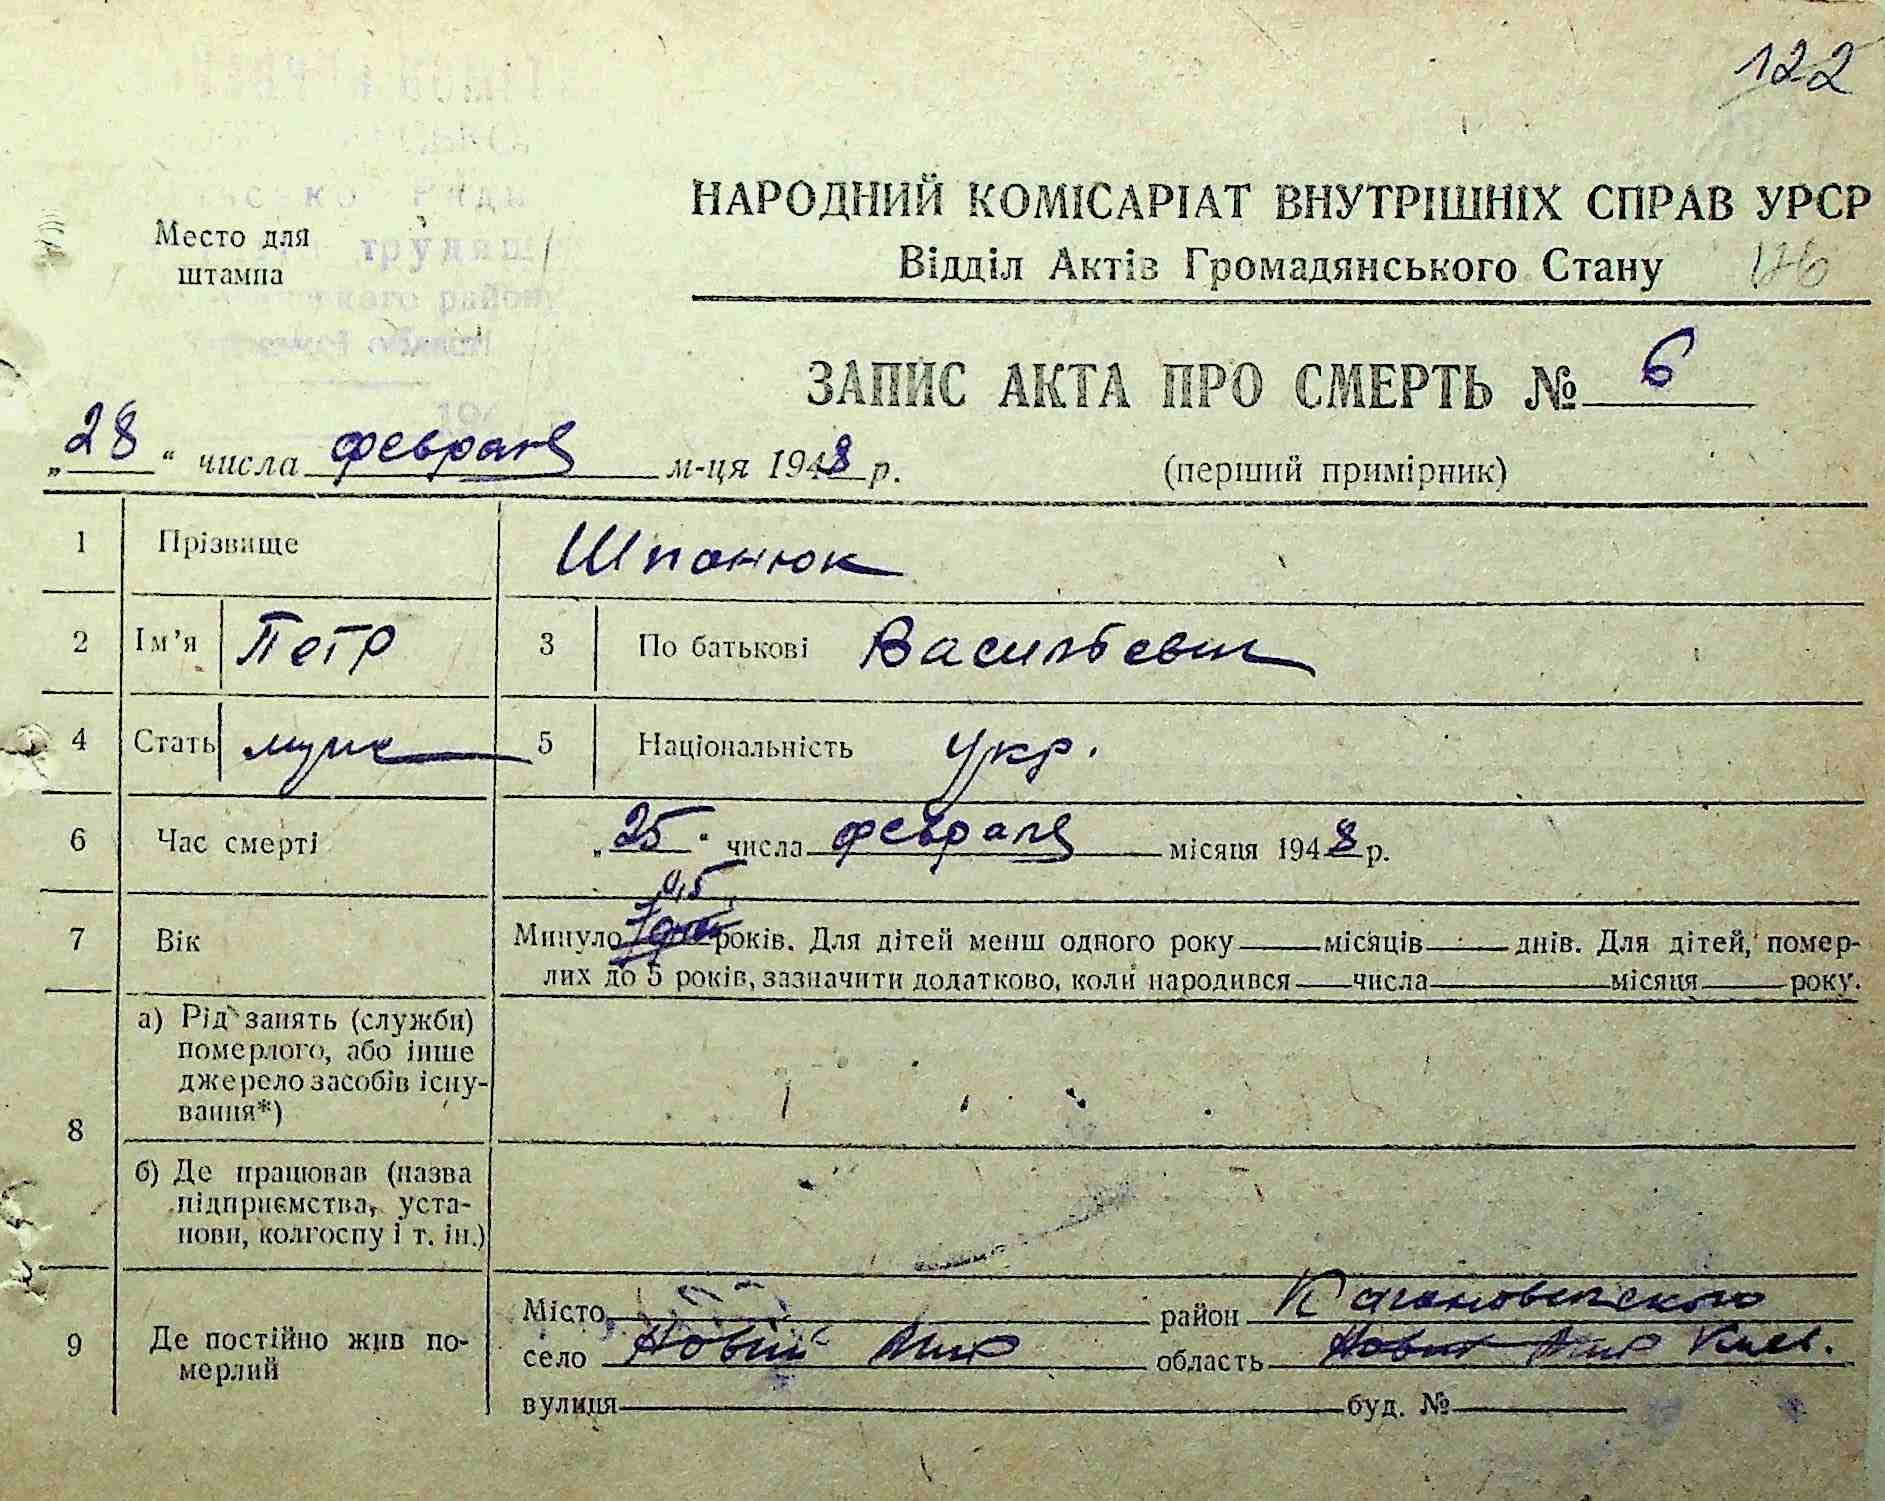 122
НАРОДНИЙ КОМІСАРІАТ ВНУТРІШНІХ СПРАВ УРСР
Место для
штампа
Відділ Актів Громадянського Стану 126
трудящ
района
області
ЗАПИС АКТА ПРО СМЕРТЬ № 6
„28“ числа февраля м-ця 1948 р. (перший примірник)
1 Прізвище Шпанюк
2 Ім'я Петр 3 По батькові Васильевич
4 Стать муж 5 Національність укр.
6 Час смерті „25“ числа февраля місяця 1948 р.
0,5
7 Вік Минуло років. Для дітей менш одного року місяців днів. Для дітей, помер-
лих до 5 років, зазначити додатково, коли народився числа місяця року.
8 а) Рід занять (служби)
померлого, або інше
джерело засобів існу-
вання*)
б) Де працював (назва
підприємства, уста-
нови, колгоспу і т. ін.)
9 Де постійно жив по-
мерлий
Місто район Кагановического
село Новый Мир область Новый Мир Киев.
вулиця буд. №